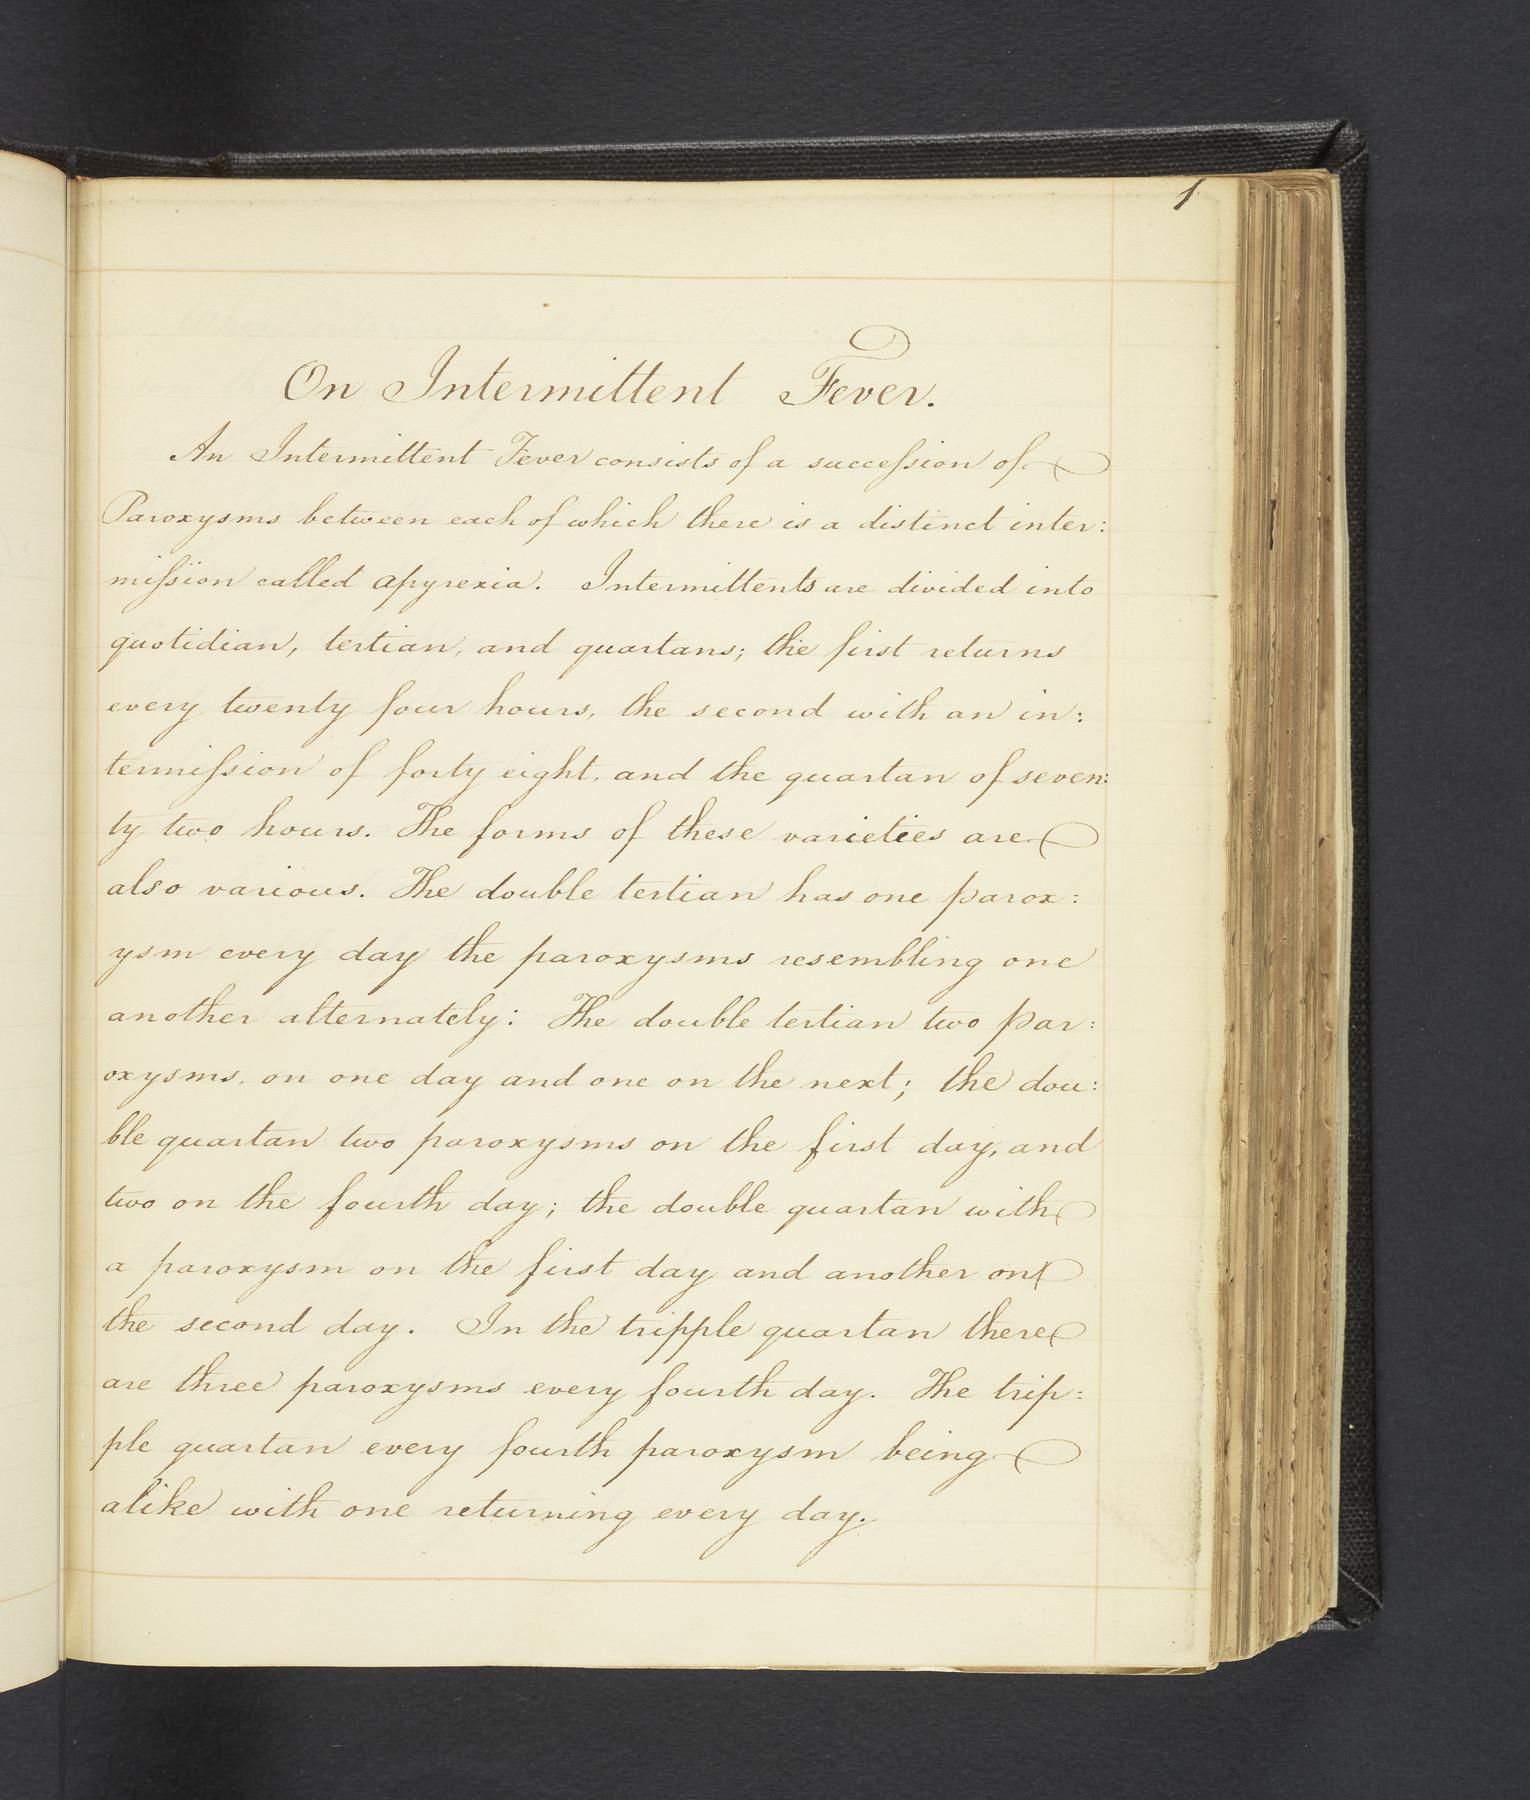 1
On Intermittent Fever.
An Intermittent Fever consists of a succeſsion of
Paroxysms between each of which there is a distinct inter:
miſsion called apyrexia. Intermittents are divided into
quotidian, tertian, and quartans; the first returns
every twenty four hours, the second with an in:
termiſsion of forty eight, and the quartan of seven:
ty two hours. The forms of these varieties are
also various. The double tertian has one parox:
ysm every day the paroxysms resembling one
another alternately: The double tertian two par:
oxysms, on one day and one on the next; the dou:
ble quartan two paroxysms on the first day, and
two on the fourth day; the double quartan with
a paroxysm on the first day and another on
the second day. In the tripple quartan there
are three paroxysms every fourth day. The trip:
ple quartan every fourth paroxysm being
alike with one returning every day.